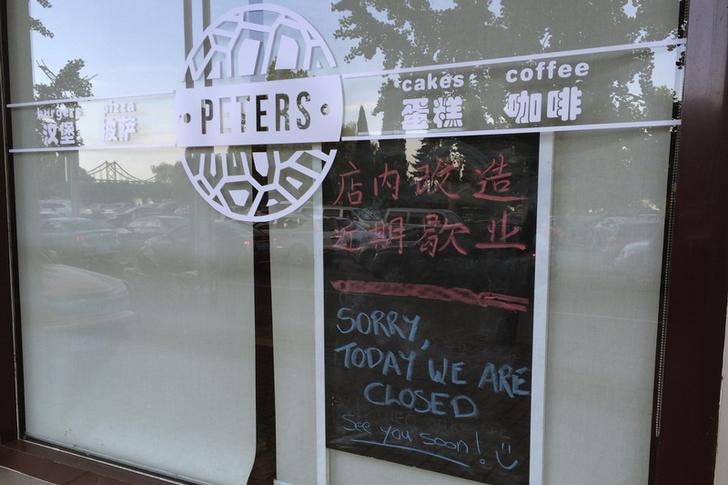 PETERS
burgers pizza
汉堡 披萨
cakes coffee
蛋糕 咖啡
店内改造
近期歇业
SORRY,
TODAY WE ARE
CLOSED
See you soon! :)